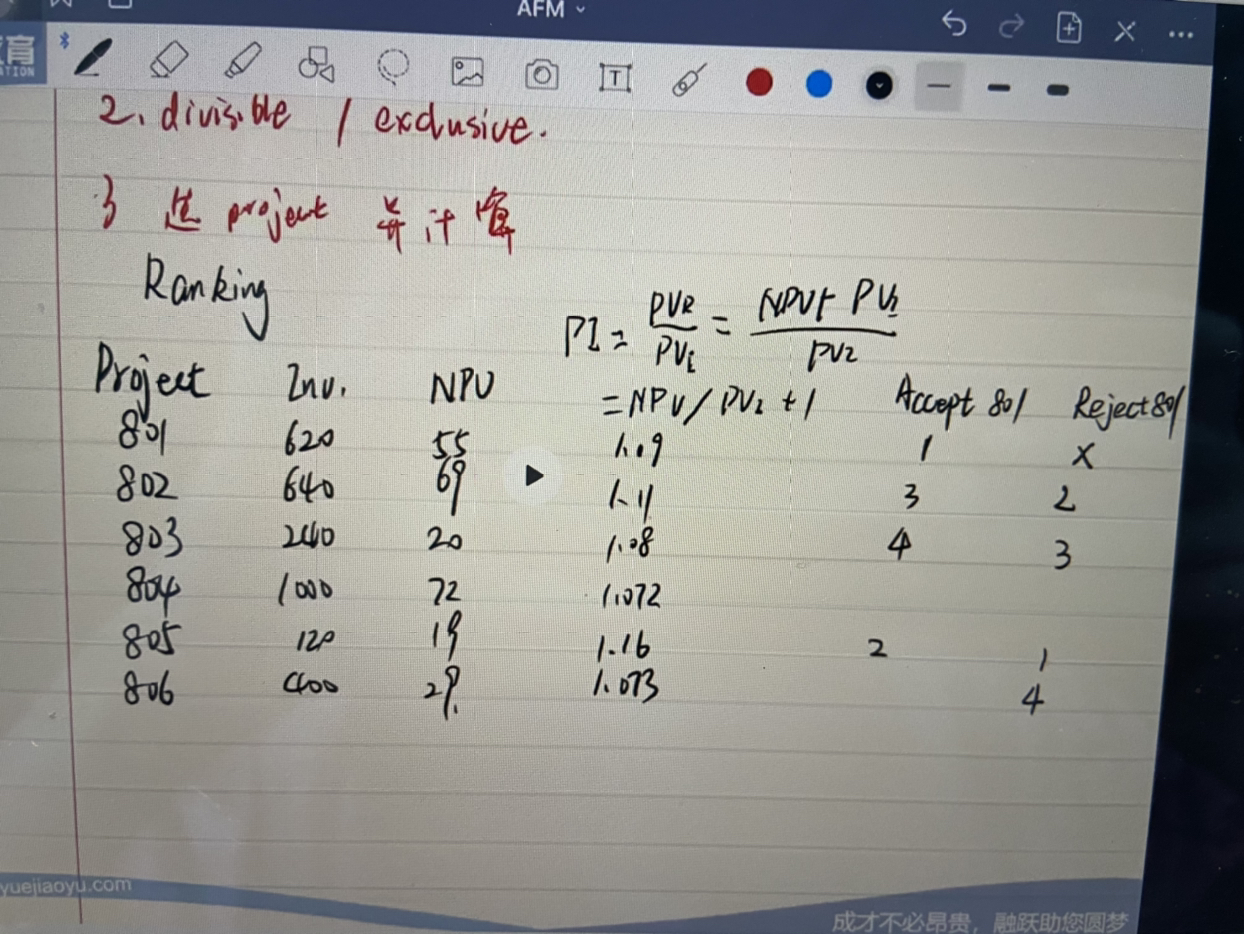 AFM
育
ATION
T
2. divisible / exclusive.
3 选 project 并计算
Ranking
PI = PVR/PVI = NPV+PVI/PVI
Project Inv. NPV = NPV/PVI +1 Accept 801 Reject 801
801 620 55 1.09 1 X
802 640 69 1.11 3 2
803 240 20 1.08 4 3
804 1000 72 1.072
805 120 19 1.16 2 1
806 400 29. 1.073 4
yuejiaoyu.com
成才不必昂贵，融跃助您圆梦